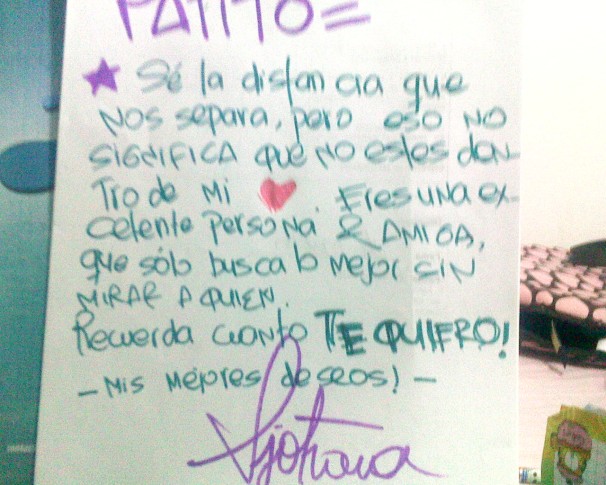 PATITO=
Sé la distancia que
NOS separa, pero eso NO
SIGNIFICA que NO estes den-
Tro de Mi ❤. Eres una ex-
celente persona & AMIGA,
que sólo busca lo mejor SIN
MIRAR A QUIEN.
Recuerda cuanto TE QUIERO!
- Mis Mejores deseos! -